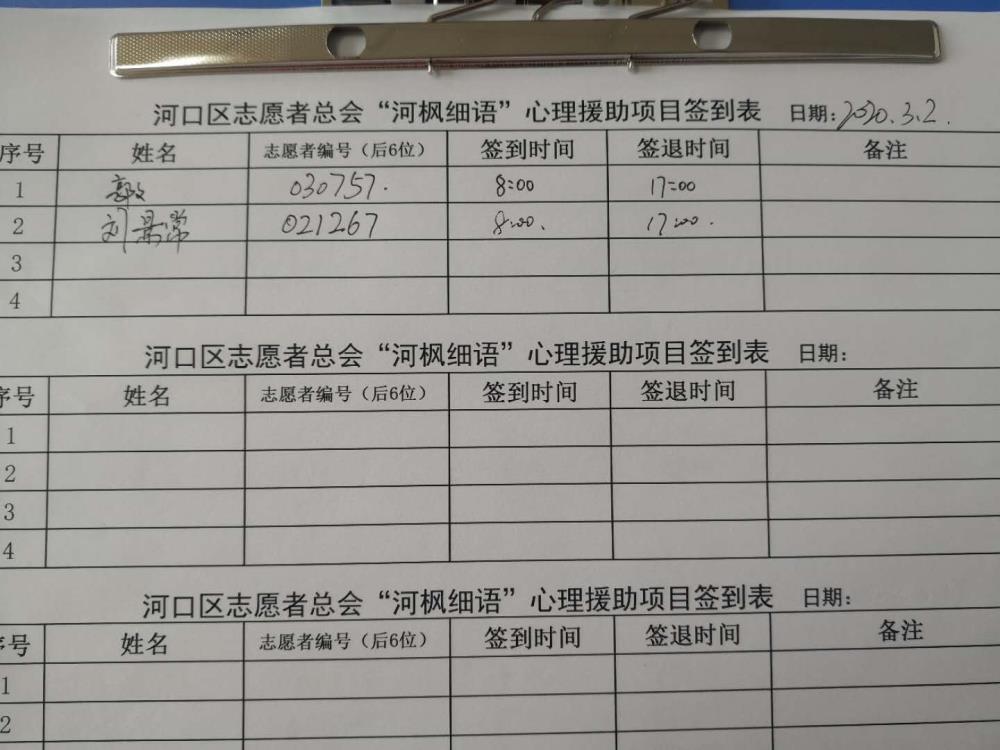 河口区志愿者总会“河枫细语”心理援助项目签到表 日期:2020.3.2.
序号 姓名 志愿者编号（后6位） 签到时间 签退时间 备注
1 030757. 8:00 17:00
2 刘景常 021267 8:00. 17:00.
3
4
河口区志愿者总会“河枫细语”心理援助项目签到表 日期:
序号 姓名 志愿者编号（后6位） 签到时间 签退时间 备注
1
2
3
4
河口区志愿者总会“河枫细语”心理援助项目签到表 日期:
序号 姓名 志愿者编号（后6位） 签到时间 签退时间 备注
1
2